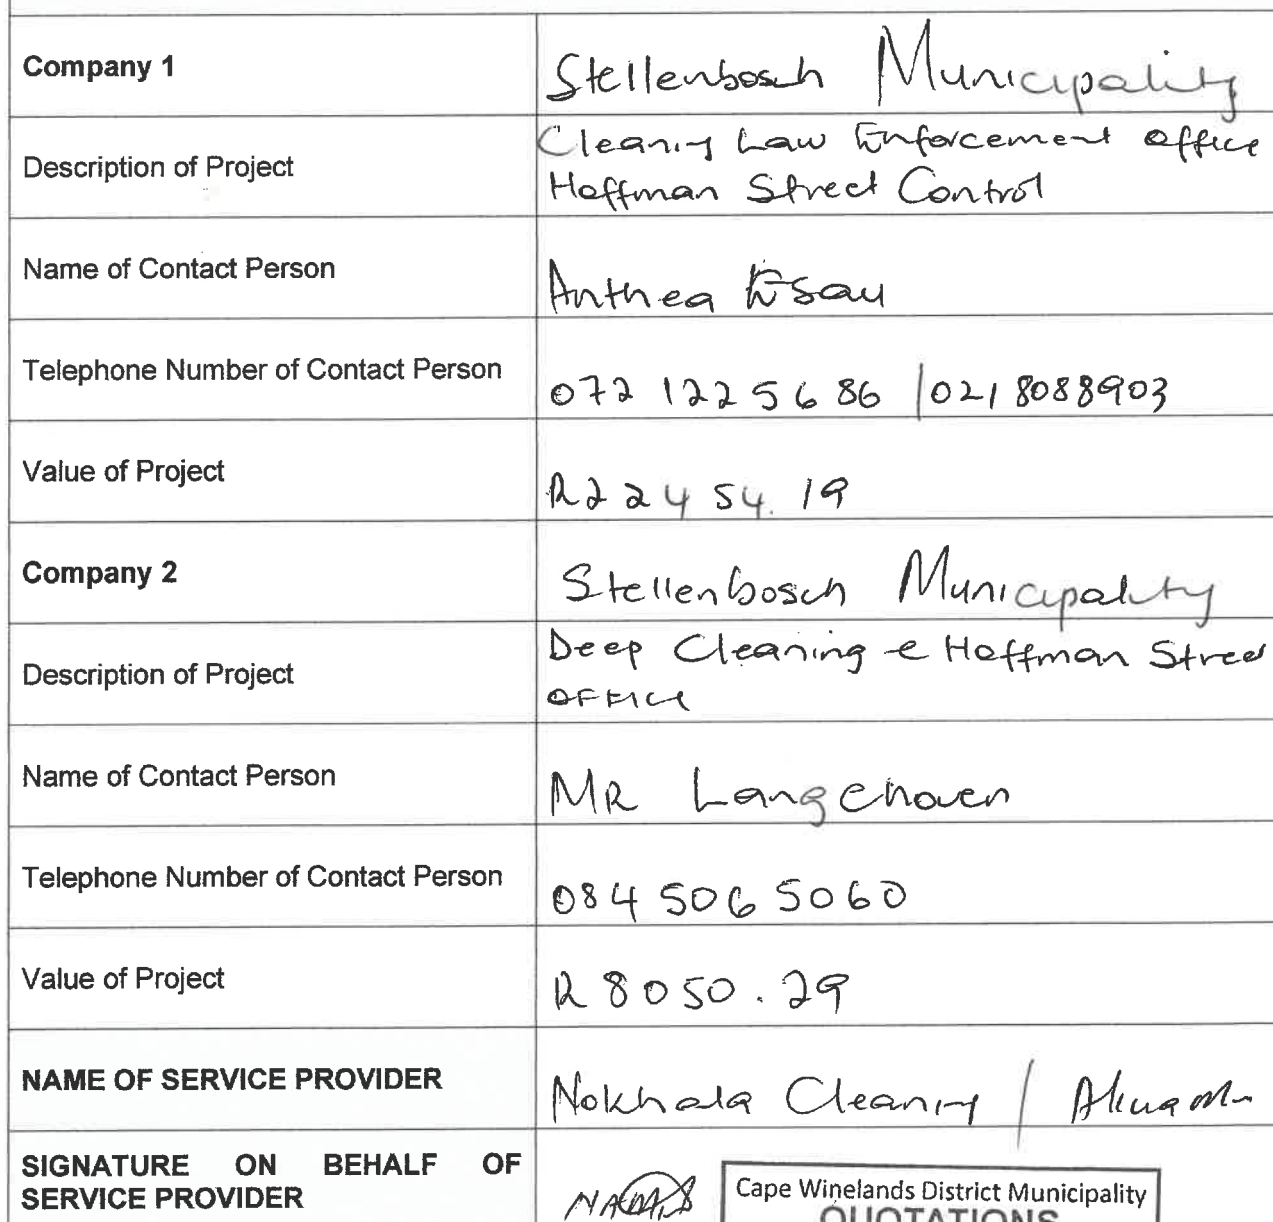 Company 1 Stellenbosch Municipality
Description of Project Cleaning Law Enforcement office
Hoffman Street Control
Name of Contact Person Anthea Esau
Telephone Number of Contact Person 072 122 5686 / 021 8088903
Value of Project R22454.19
Company 2 Stellenbosch Municipality
Description of Project Deep Cleaning e Hoffman Street
OFFICE
Name of Contact Person MR Langehoven
Telephone Number of Contact Person 084 506 5060
Value of Project R8050.29
NAME OF SERVICE PROVIDER Nokhala Cleaning /
SIGNATURE ON BEHALF OF
SERVICE PROVIDER
Cape Winelands District Municipality
QUOTATIONS